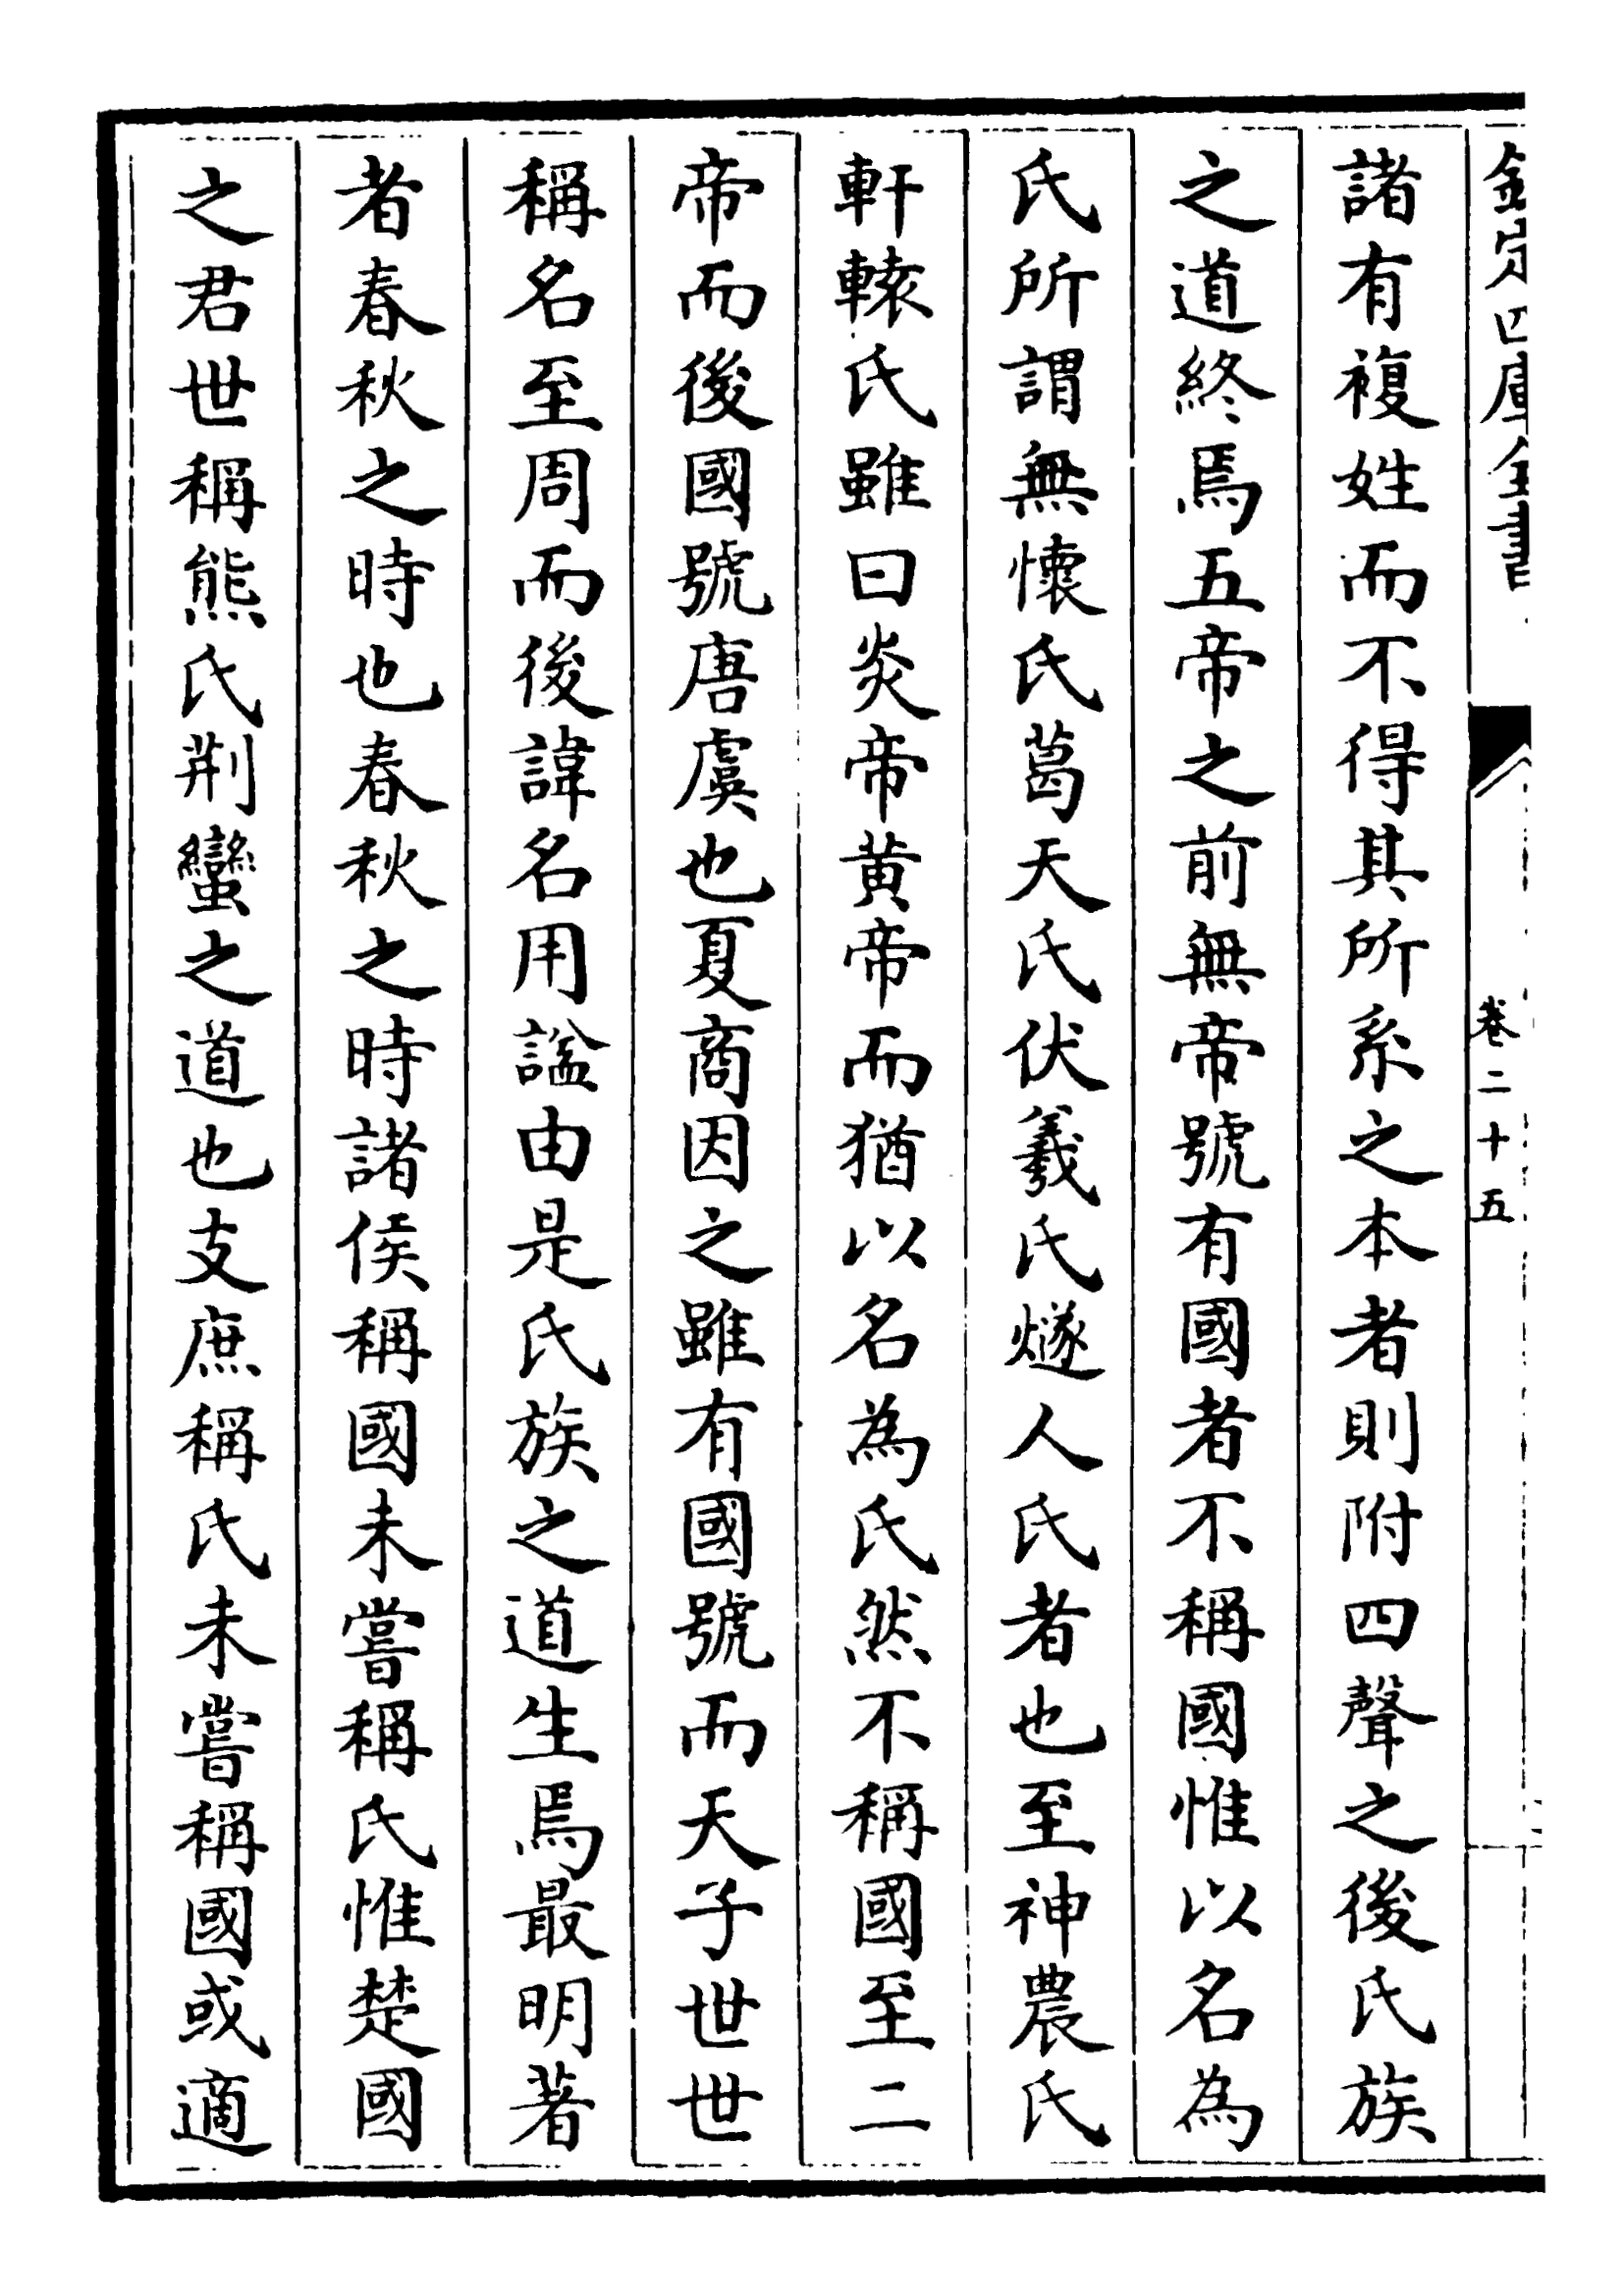 欽定四庫全書
卷二十五
諸有複姓而不得其所系之本者則附四聲之後氏族
之道終焉五帝之前無帝號有國者不稱國惟以名為
氏所謂無懷氏葛天氏伏羲氏燧人氏者也至神農氏
軒轅氏雖曰炎帝黄帝而猶以名為氏然不稱國至二
帝而後國號唐虞也夏商因之雖有國號而天子世世
稱名至周而後諱名用諡由是氏族之道生焉最明著
者春秋之時也春秋之時諸侯稱國未嘗稱氏惟楚國
之君世稱熊氏荆蠻之道也支庶稱氏未嘗稱國或適